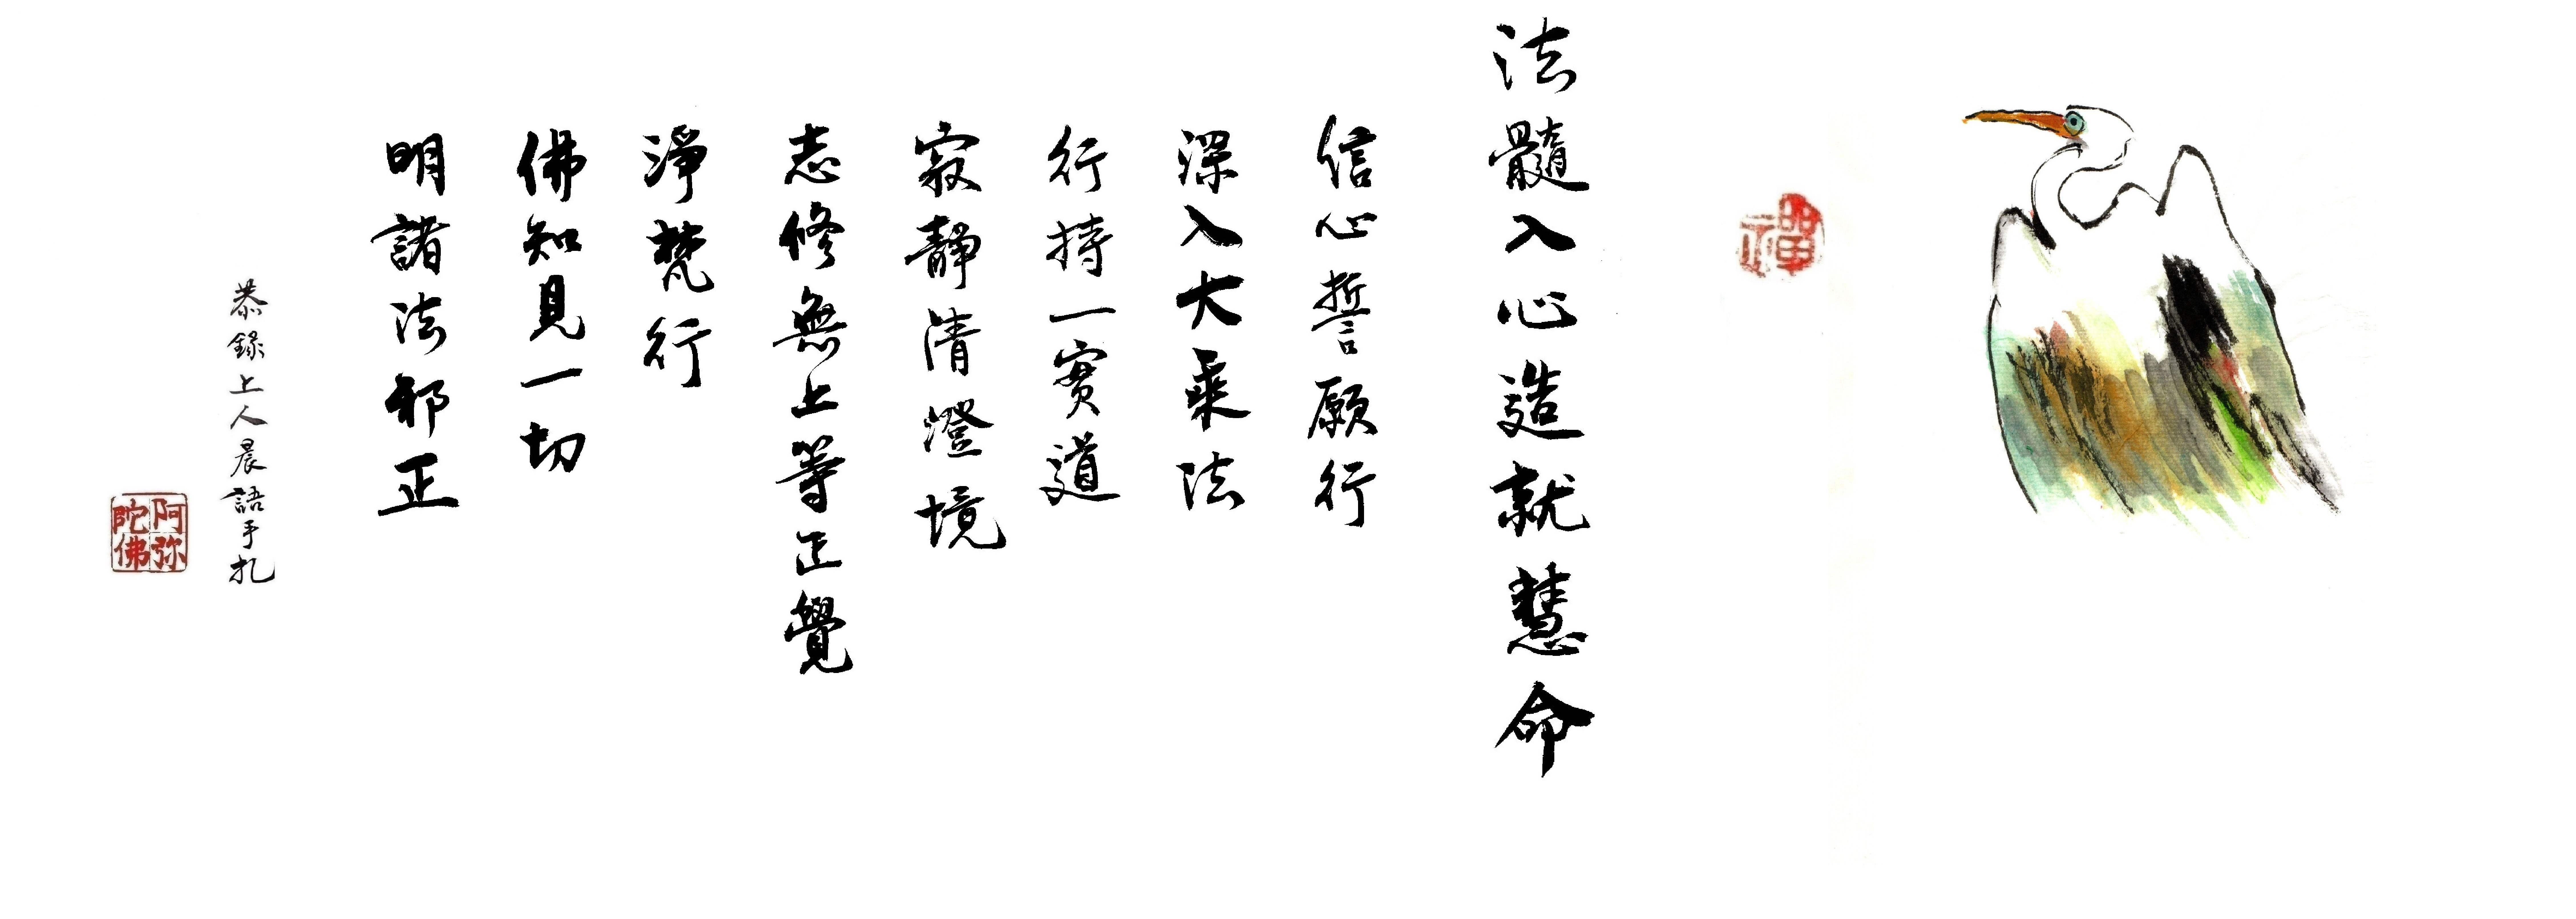 禪
法髓入心造就慧命
信心誓願行
深入大乘法
行持一實道
寂靜清澄境
志修無上等正覺
淨梵行
佛知見一切
明諸法邪正
恭錄上人晨語手札
阿弥
陀佛